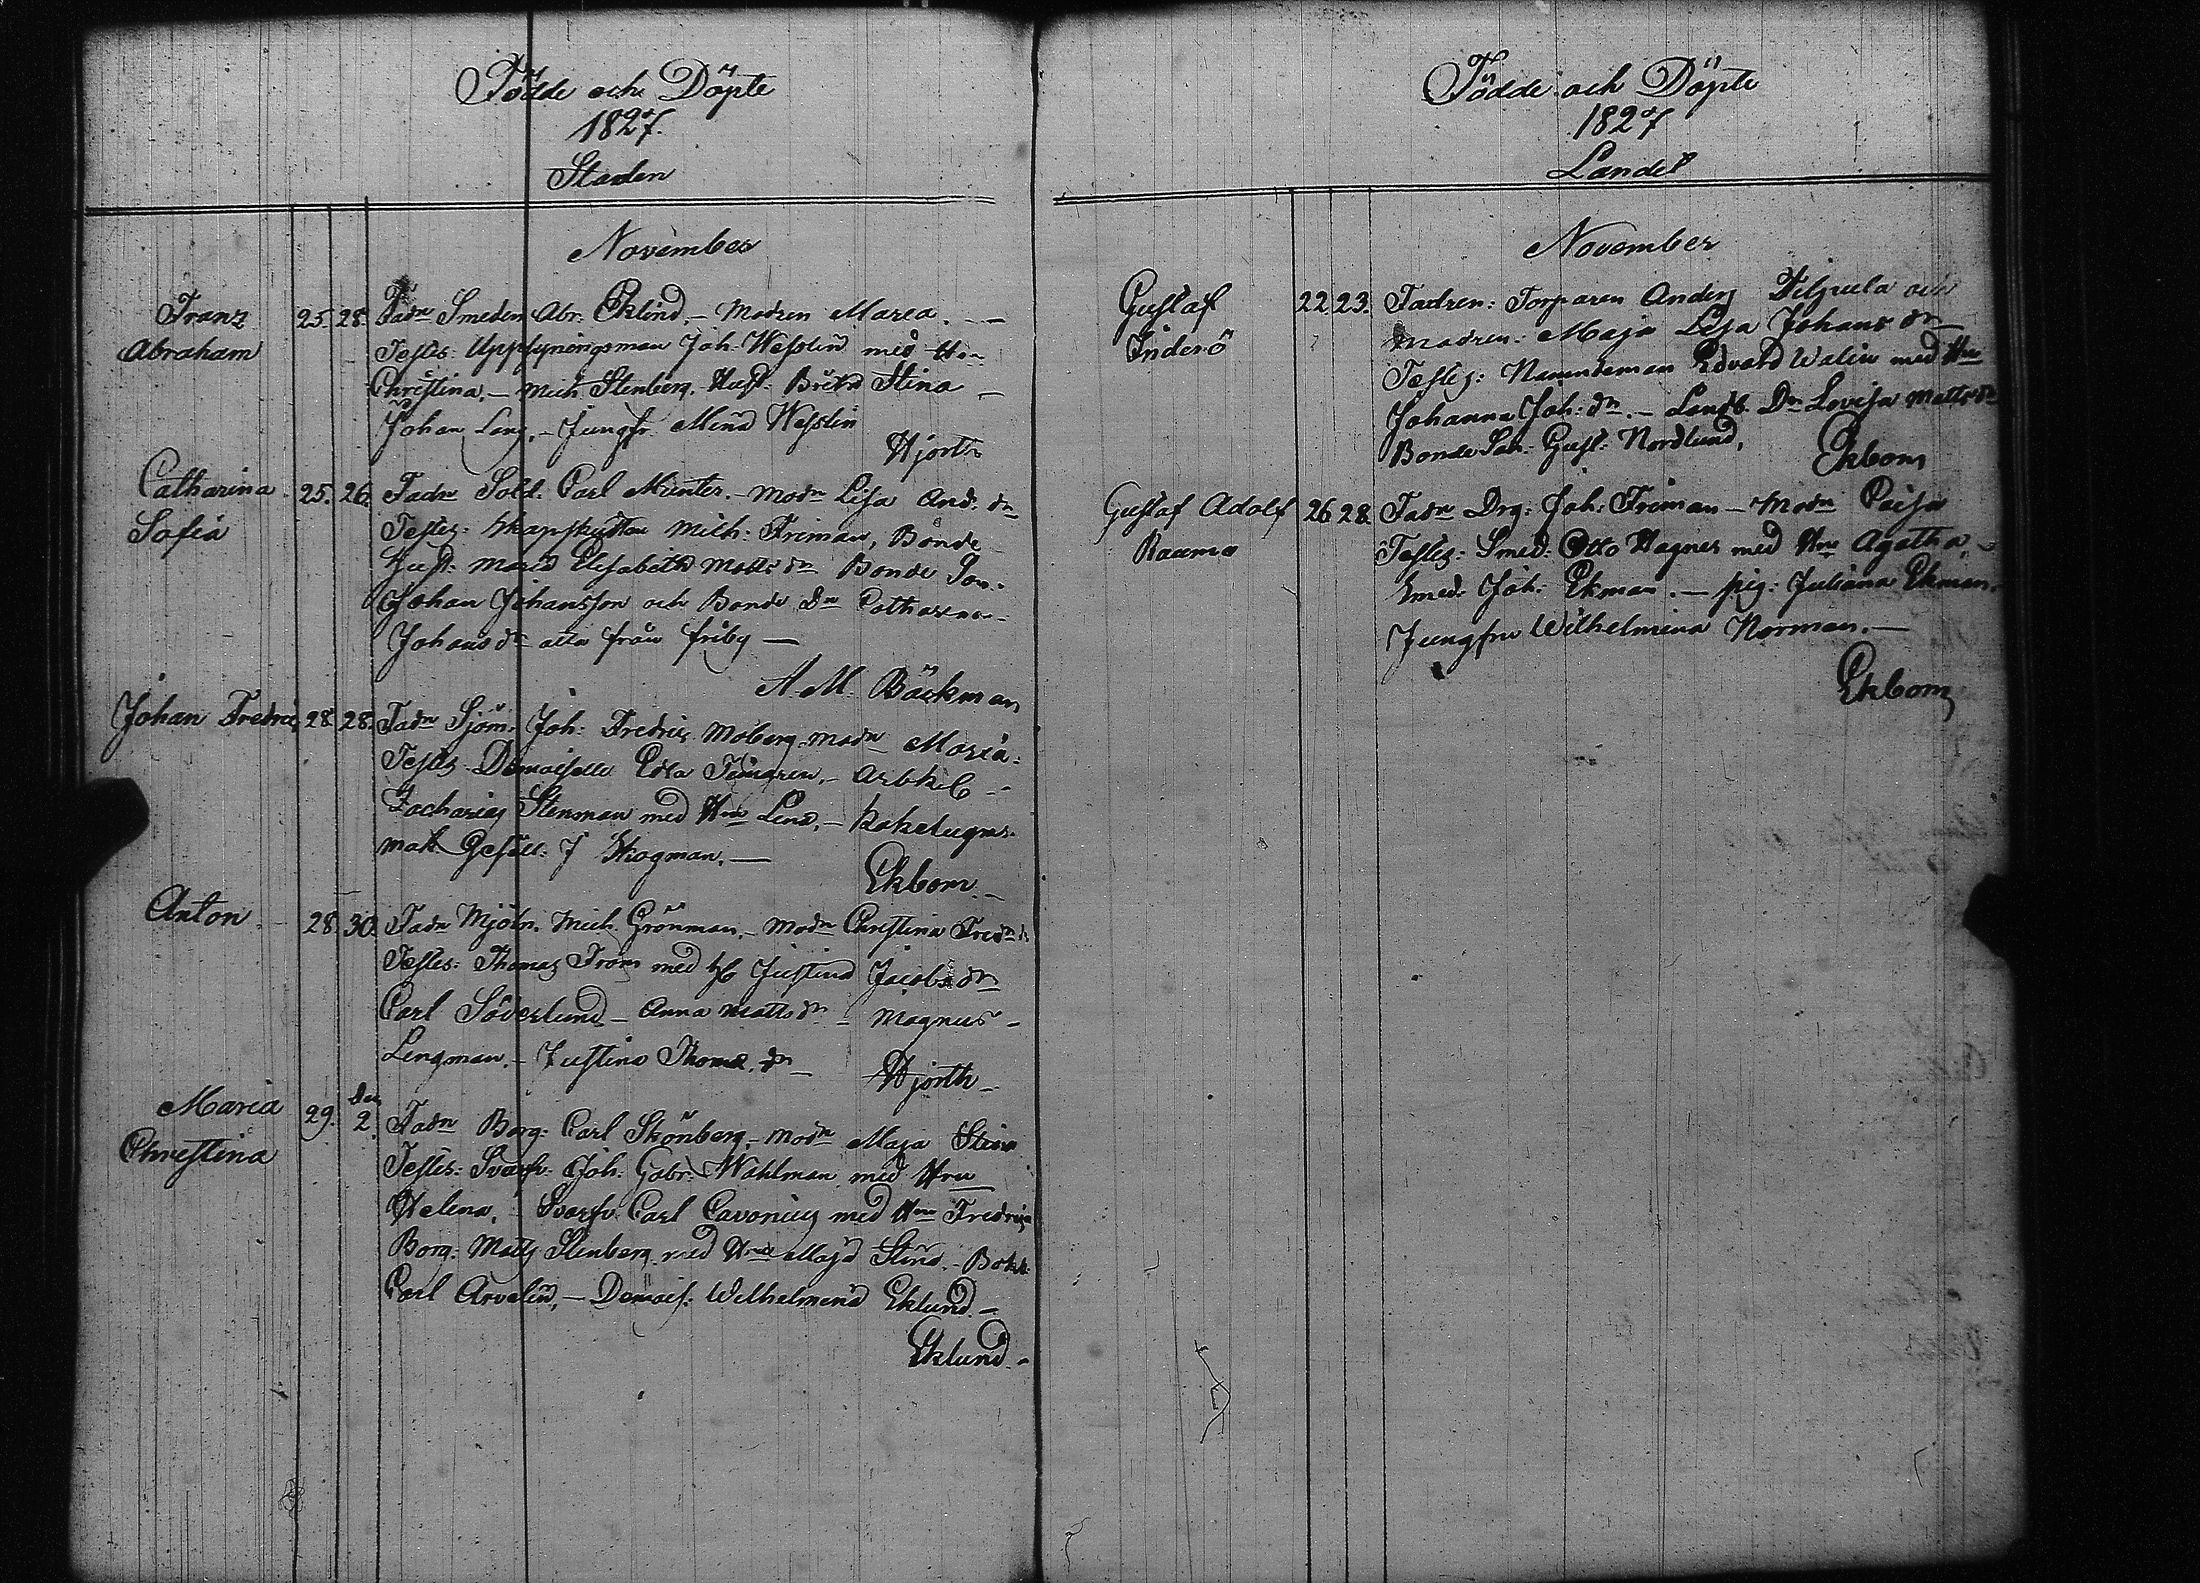 Födde och Döpte
1827.
Staden
November
Franz 25. 28. Fadn Smeden Abr. Eklind, - Modren Maria. -
Abraham
Testes: Uppsyningsman Joh. Wesslin med Hu
Christina, - Mich Stenberg. Hust. Brita Stina -
Johan Lang, - Jungfr. Mina Wesslin
Hjorth
Catharina 25. 26. Fadn Sold. Carl Munter. - Modn Lisa And. dn
Sofia
Testes: Mich: Friman, Bonde
Hust. Maria Elisabeth Matts dn Bonde Son
Johan Johansson och Bonde Dn Catharina
Johans dn alla från friby -
A. M. Bäckman
Johan Fredric 28. 28. Fadn Sjöm. Joh. Fredric Moberg. modn Maria.
Testes. Demoiselle Edla - Arbk
Zacharias Stensman med Hru Lena, - Kakelugns
mak. Gesäll. J Skogman. -
Ekbom. -
Anton. 28. 30. Fadn Mjöln. Mich. Grönman. - Modn Christina Fredr. d
Testes: Thomas From med Justina Jacobs dn
Carl Söderlund - Anna Matts dn - Magnus -
Lengman. - Justina Thomæ. dn -
Hjorth -
Maria 29. Dec 2. Fadn Borg. Carl Skönberg, - Modn Maja Stina
Christina
Testes: Svarfv. Joh. Gabr. Wahlman med Hru
Helena. Svarfv. Carl Cavonius med Hru Fredrica
Borg. Matts Stenberg med Hru Maja Stina. - Bokh.
Carl Arvelin, - Demois. Wilhelmina Eklund -
Eklund. -
Födde och Döpte
1827
Landet
November
Gustaf 22 23. Fadren: Torparen Anders Filpula och
Inderö
Madren. Maja Lisa Johans dn
Testes: Nämndeman Edvard Walin med Hu
Johanna Joh: dn. - Landb. Dn Lovisa Matts dn
Bonde Son. Gust. Nordlund,
Ekbom
Gustaf Adolf 26 28. Fadn Drg. Joh. Friman - Modn Caisa
Raumo
Testes: Smed. Otto Wagner med Hru Agatha, -
Smed. Joh. Ekman. - pig. Juliana Ekman.
Jungfru Wilhelmina Norman. -
Ekbom